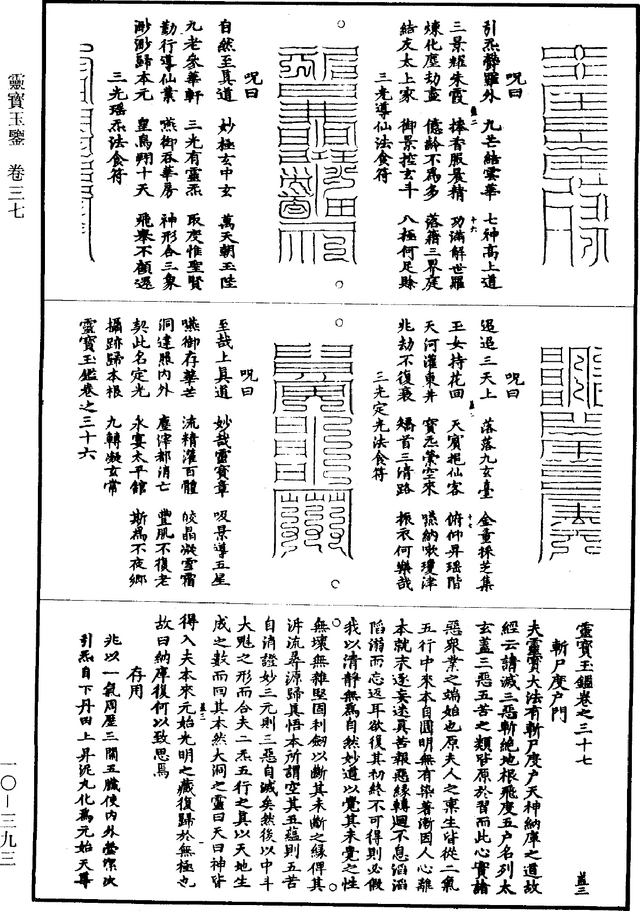 靈寶玉鑒　卷三七
一〇－三九三
呪曰
引炁靜羅外　九芒結雲華　七神高上道
三景耀朱霞　捧香服晨精　功滿解世羅
煉化塵劫盡　億齡不爲多　落籍三界庭
結友太上家　御景控玄斗　八極何足賒
三光導仙法食符
呪曰
自然至真道　妙極玄中玄　萬天朝玉陛
九老參華軒　三光有靈炁　取度惟聖賢
勤行導仙業　嚥御吞華房　神形合三象
渺渺歸本元　皇鳥翔十天　飛舉不顧還
三光瑶炁法食符
呪曰
迢迢三天上　落落九玄臺　金童採芝集
玉女持花回　天賓挹仙客　俯仰昇瑶階
天河灌東井　寶炁縈空來　嚥納嗽瓊津
兆劫不復衰　矯首三清路　振衣何樂哉
三光定光法食符
呪曰
至哉上真道　妙哉靈寶章　吸景導五星
嚥御存華芒　流精灌百體　皎晶凝雪霜
洞達腸內外　塵滓都消亡　豐肌不復老
契此名定光　永宴太平館　斯爲不夜鄉
攝跡歸本根　九轉凝玄常
靈寶玉鑑卷之三十六
靈寶玉鑑卷之三十七　蓋三
斬尸度户門
夫靈寶大法有斬尸度户天神納庫之道故
經云請滅三惡斬絶地根飛度五户名列太
玄蓋三惡五苦之類皆原於習而此心實諸
惡衆業之端始也原夫人之稟生皆從二氣
五行中來本自圓明無有染著漸因人心離
本就末逐妄迷真苦報惡緣轉迴不息滔滔
陷溺而忘返耳欲復其初終不可得則必假
我以清靜無爲自然妙道以覺其未覺之性
無壞無雜堅固利劒以斷其未斷之緣俾其
泝流尋源歸真悟本所謂空其五蘊則五苦
自消證妙三元則三惡自滅矣然後以中斗
大魁之形而合夫二炁五行之真以天地生
成之數而同其本然大洞之靈曰天曰神皆
得入夫本來元始光明之藏復歸於無極也
故曰納庫復何以致思焉
存用
兆以一氣周歷三關五臟使内外瑩潔次
引炁自下丹田上昇泥丸化爲元始天尊